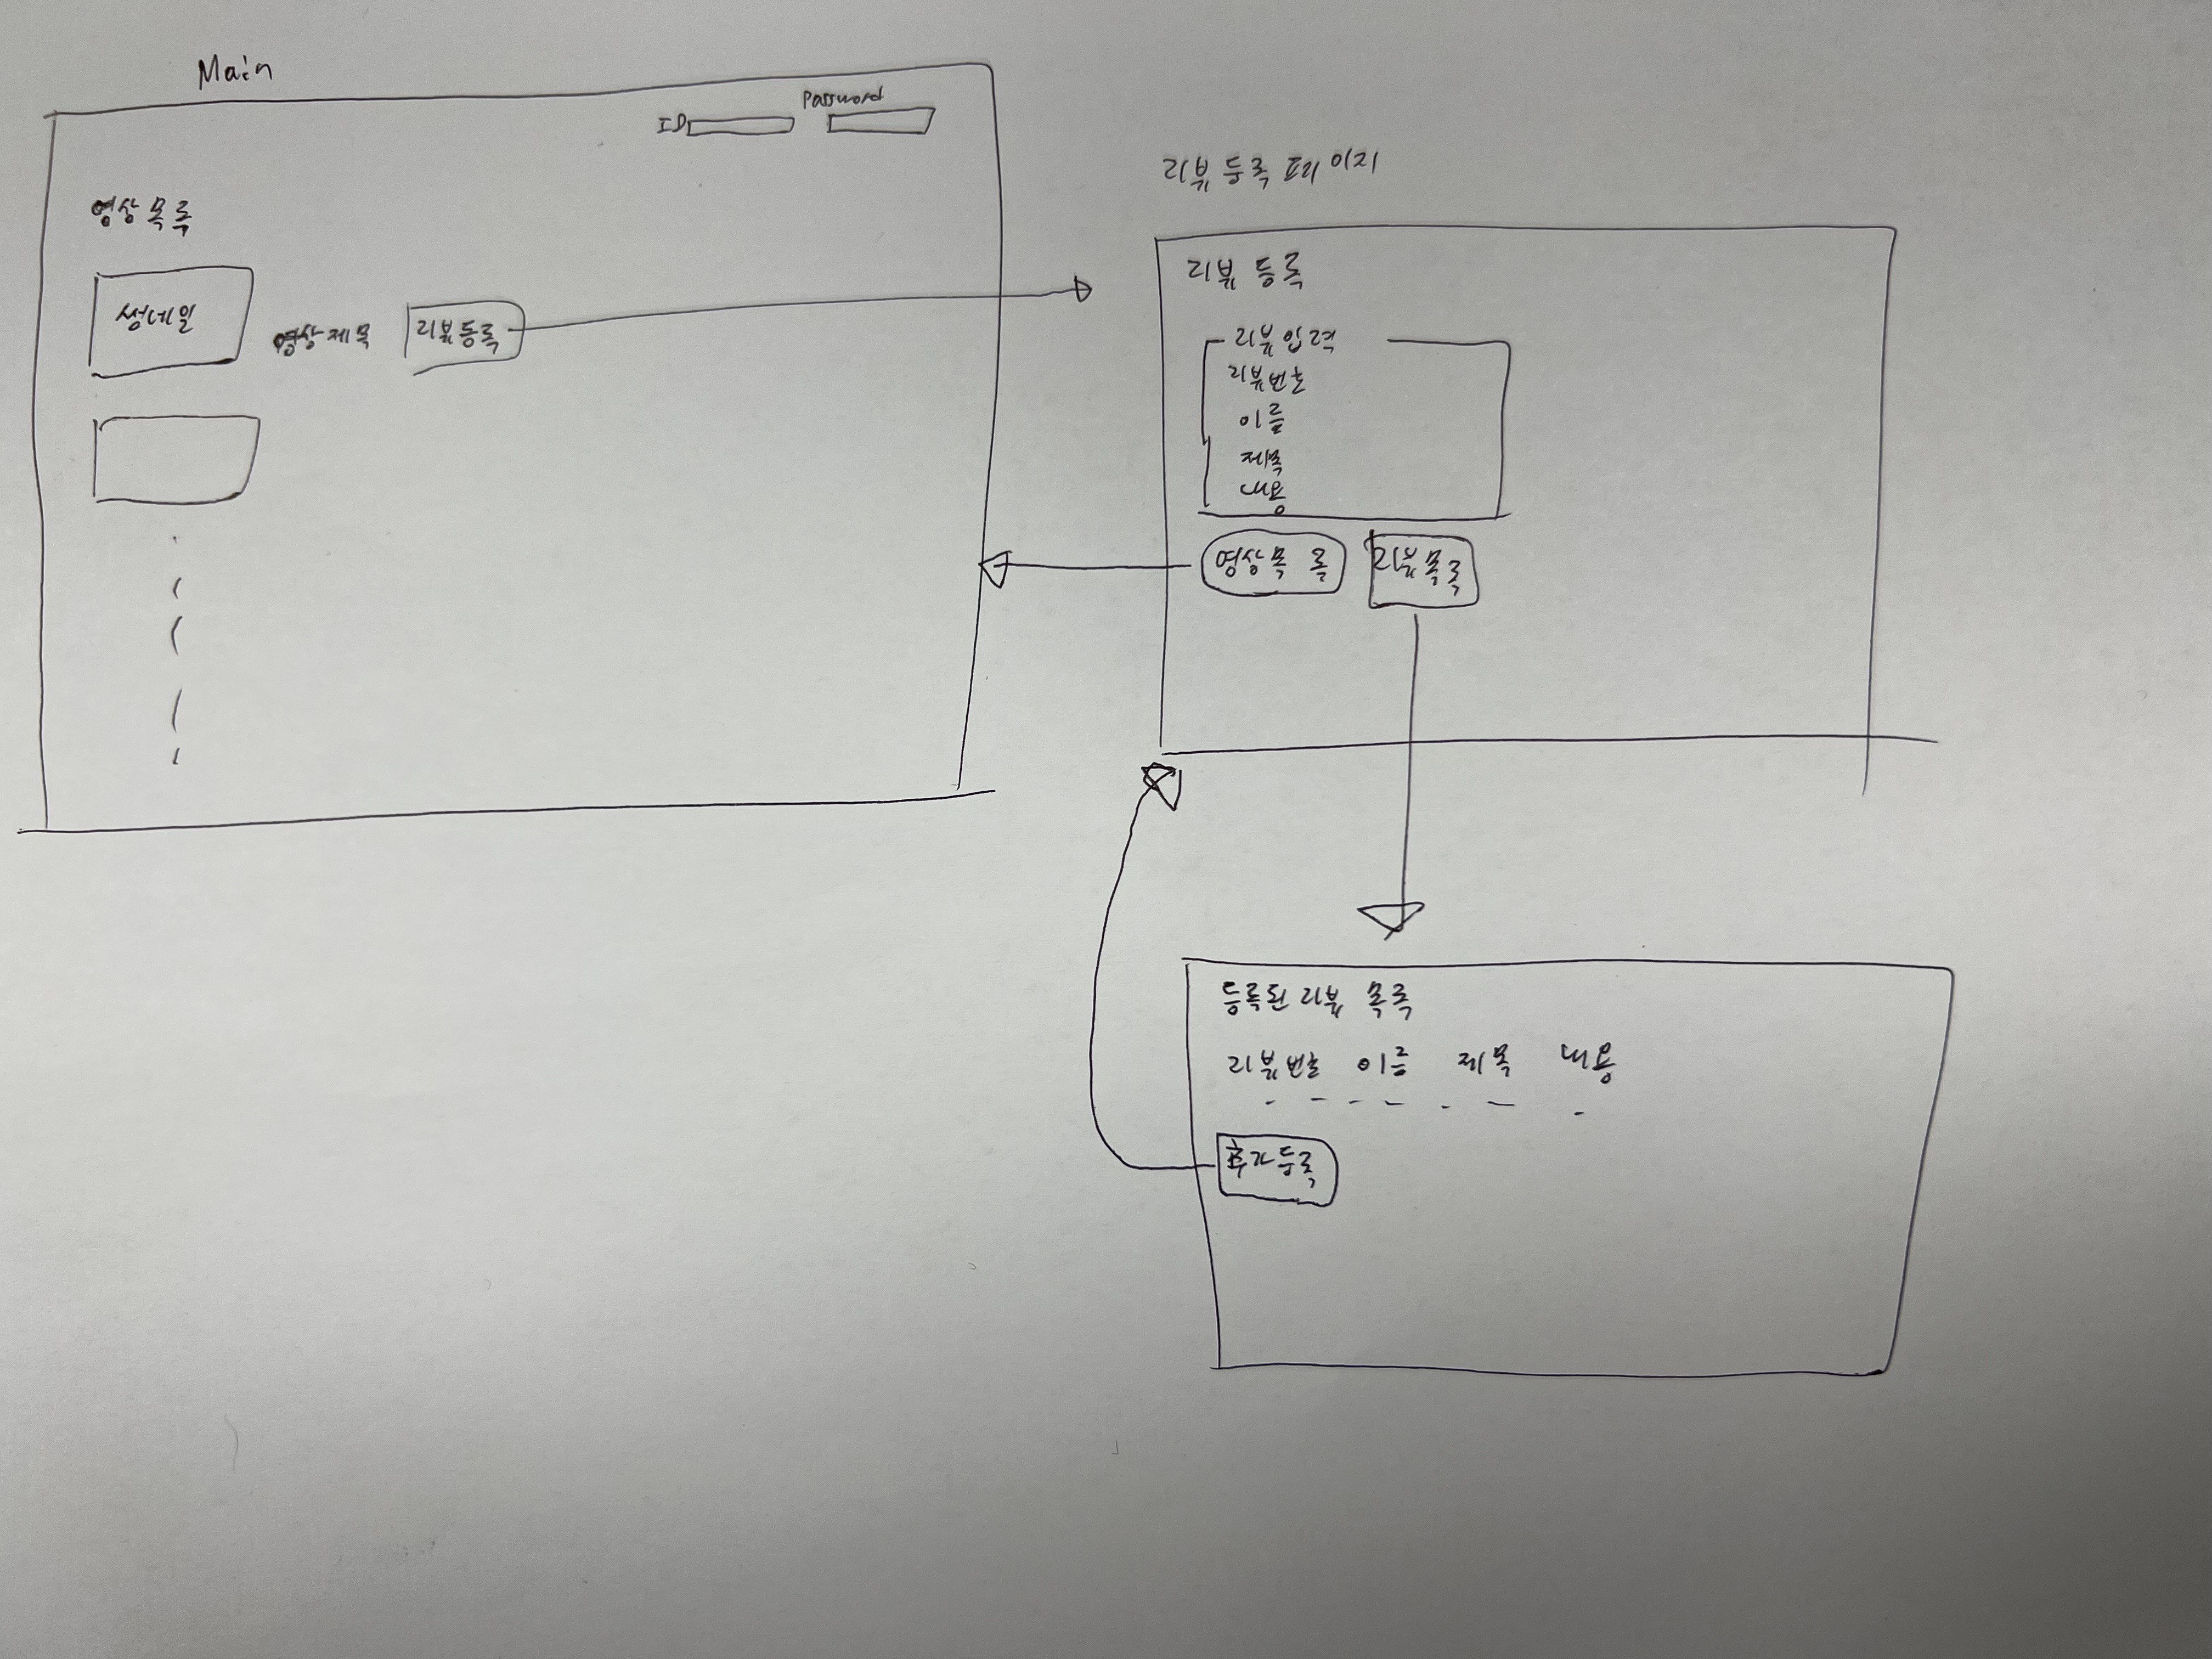 Main
ID
Password
영상목록
썸네일
영상제목
리뷰등록
리뷰 등록 페이지
리뷰 등록
리뷰입력
리뷰번호
이름
제목
내용
영상목록
리뷰목록
등록된 리뷰 목록
리뷰번호 이름 제목 내용
추가등록